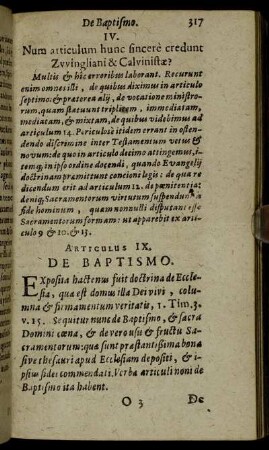 De Baptismo. 317
IV.
Num articulum hunc sincerè credunt
Zvvingliani & Calvinistæ?
Multis & hîc erroribus laborant. Recurunt
enim omnes isti, de quibus diximus in articulo
septimo: & præterea alij, de vocatione ministro-
rum, quam statuunt triplicem, immediatam,
mediatam, & mixtam, de quibus videbimus ad
articulum 14. Periculosè itidem errant in osten-
dendo discrimine inter Testamentum vetus &
novum: de quo in articulo decimo attingemus, i-
tem, in ipso ordine docendi, quando Evangelij
doctrinam præmittunt concioni legis: de qua re
dicendum erit ad articulum 12. de pœnitentia:
deniq; Sacramentorum virtutem suspendunt à
fide hominum, quam nonnulli disputant esse
Sacramentorum formam: ut apparebit ex arti-
culo 9 & 10. & 13.
ARTICULUS IX.
DE BAPTISMO.
EXposita hactenus fuit doctrina de Eccle-
sia, qua est domus illa Dei vivi, colu-
mna & firmamentum veritatis, 1. Tim. 3.
v. 15. Sequitur nunc de Baptismo, & sacra
Domini cœna, & de vero usu & fructu Sa-
cramentorum: qua sunt præstantissima bona
sive thesauri apud Ecclesiam depositi, & i-
psius fidei commendati. Verba articuli noni de
Baptismo ita habent.
O 3 De